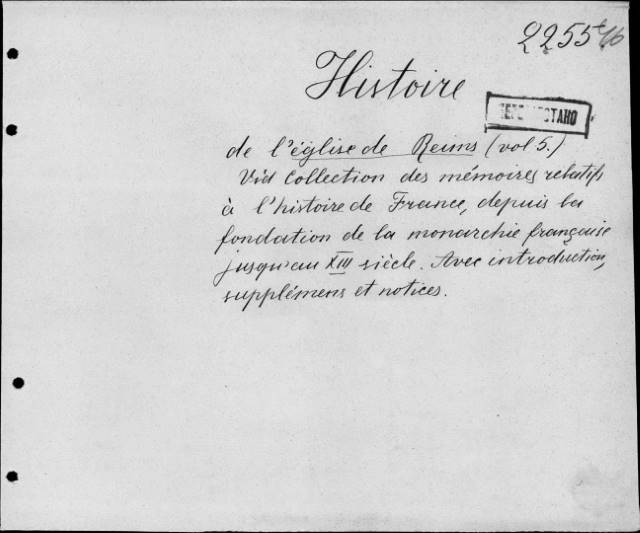 2255
Histoire
de l'église de Reims (vol 5.)
Vid Collection des mémoires relatifs
à l'histoire de France, depuis la
fondation de la monarchie française
jusqu'au XIII siècle. Avec introduction,
supplémens et notices.